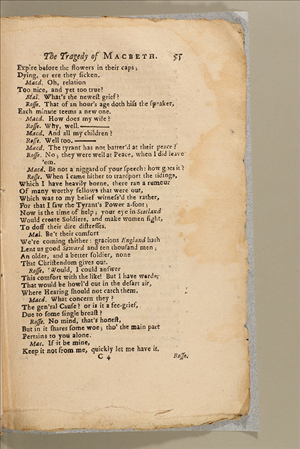 The Tragedy of MACBETH. 55
Expire before the flowers in their caps;
Dying, or ere they sicken.
Macd. Oh, relation
Too nice, and yet too true!
Mal. What's the newest grief?
Rosse. That of an hour's age doth hiss the speaker,
Each minute teems a new one.
Macd. How does my wife?
Rosse. Why, well.
Macd. And all my children?
Rosse. Well too.
Macd. The tyrant has not batter'd at their peace?
Rosse. No; they were well at Peace, when I did leave
'em.
Macd. Be not a niggard of your speech: how goes it?
Rosse. When I came hither to transport the tidings,
Which I have heavily borne, there ran a rumour
Of many worthy fellows that were out,
Which was to my belief witness'd the rather,
For that I saw the Tyrant's Power a-foot;
Now is the time of help; your eye in Scotland
Would create Soldiers, and make women fight,
To doff their dire distresses.
Mal. Be't their comfort
We're coming thither: gracious England hath
Lent us good Seward and ten thousand men;
An older, and a better soldier, none
That Christendom gives out.
Rosse. 'Would, I could answer
This comfort with the like! But I have words,
That would be howl'd out in the desart air,
Where Hearing should not catch them.
Macd. What concern they?
The gen'ral Cause? or is it a fee-grief,
Due to some single breast?
Rosse. No mind, that's honest,
But in it shares some woe; tho' the main part
Pertains to you alone.
Mac. If it be mine,
Keep it not from me, quickly let me have it.
C 4 Rosse.